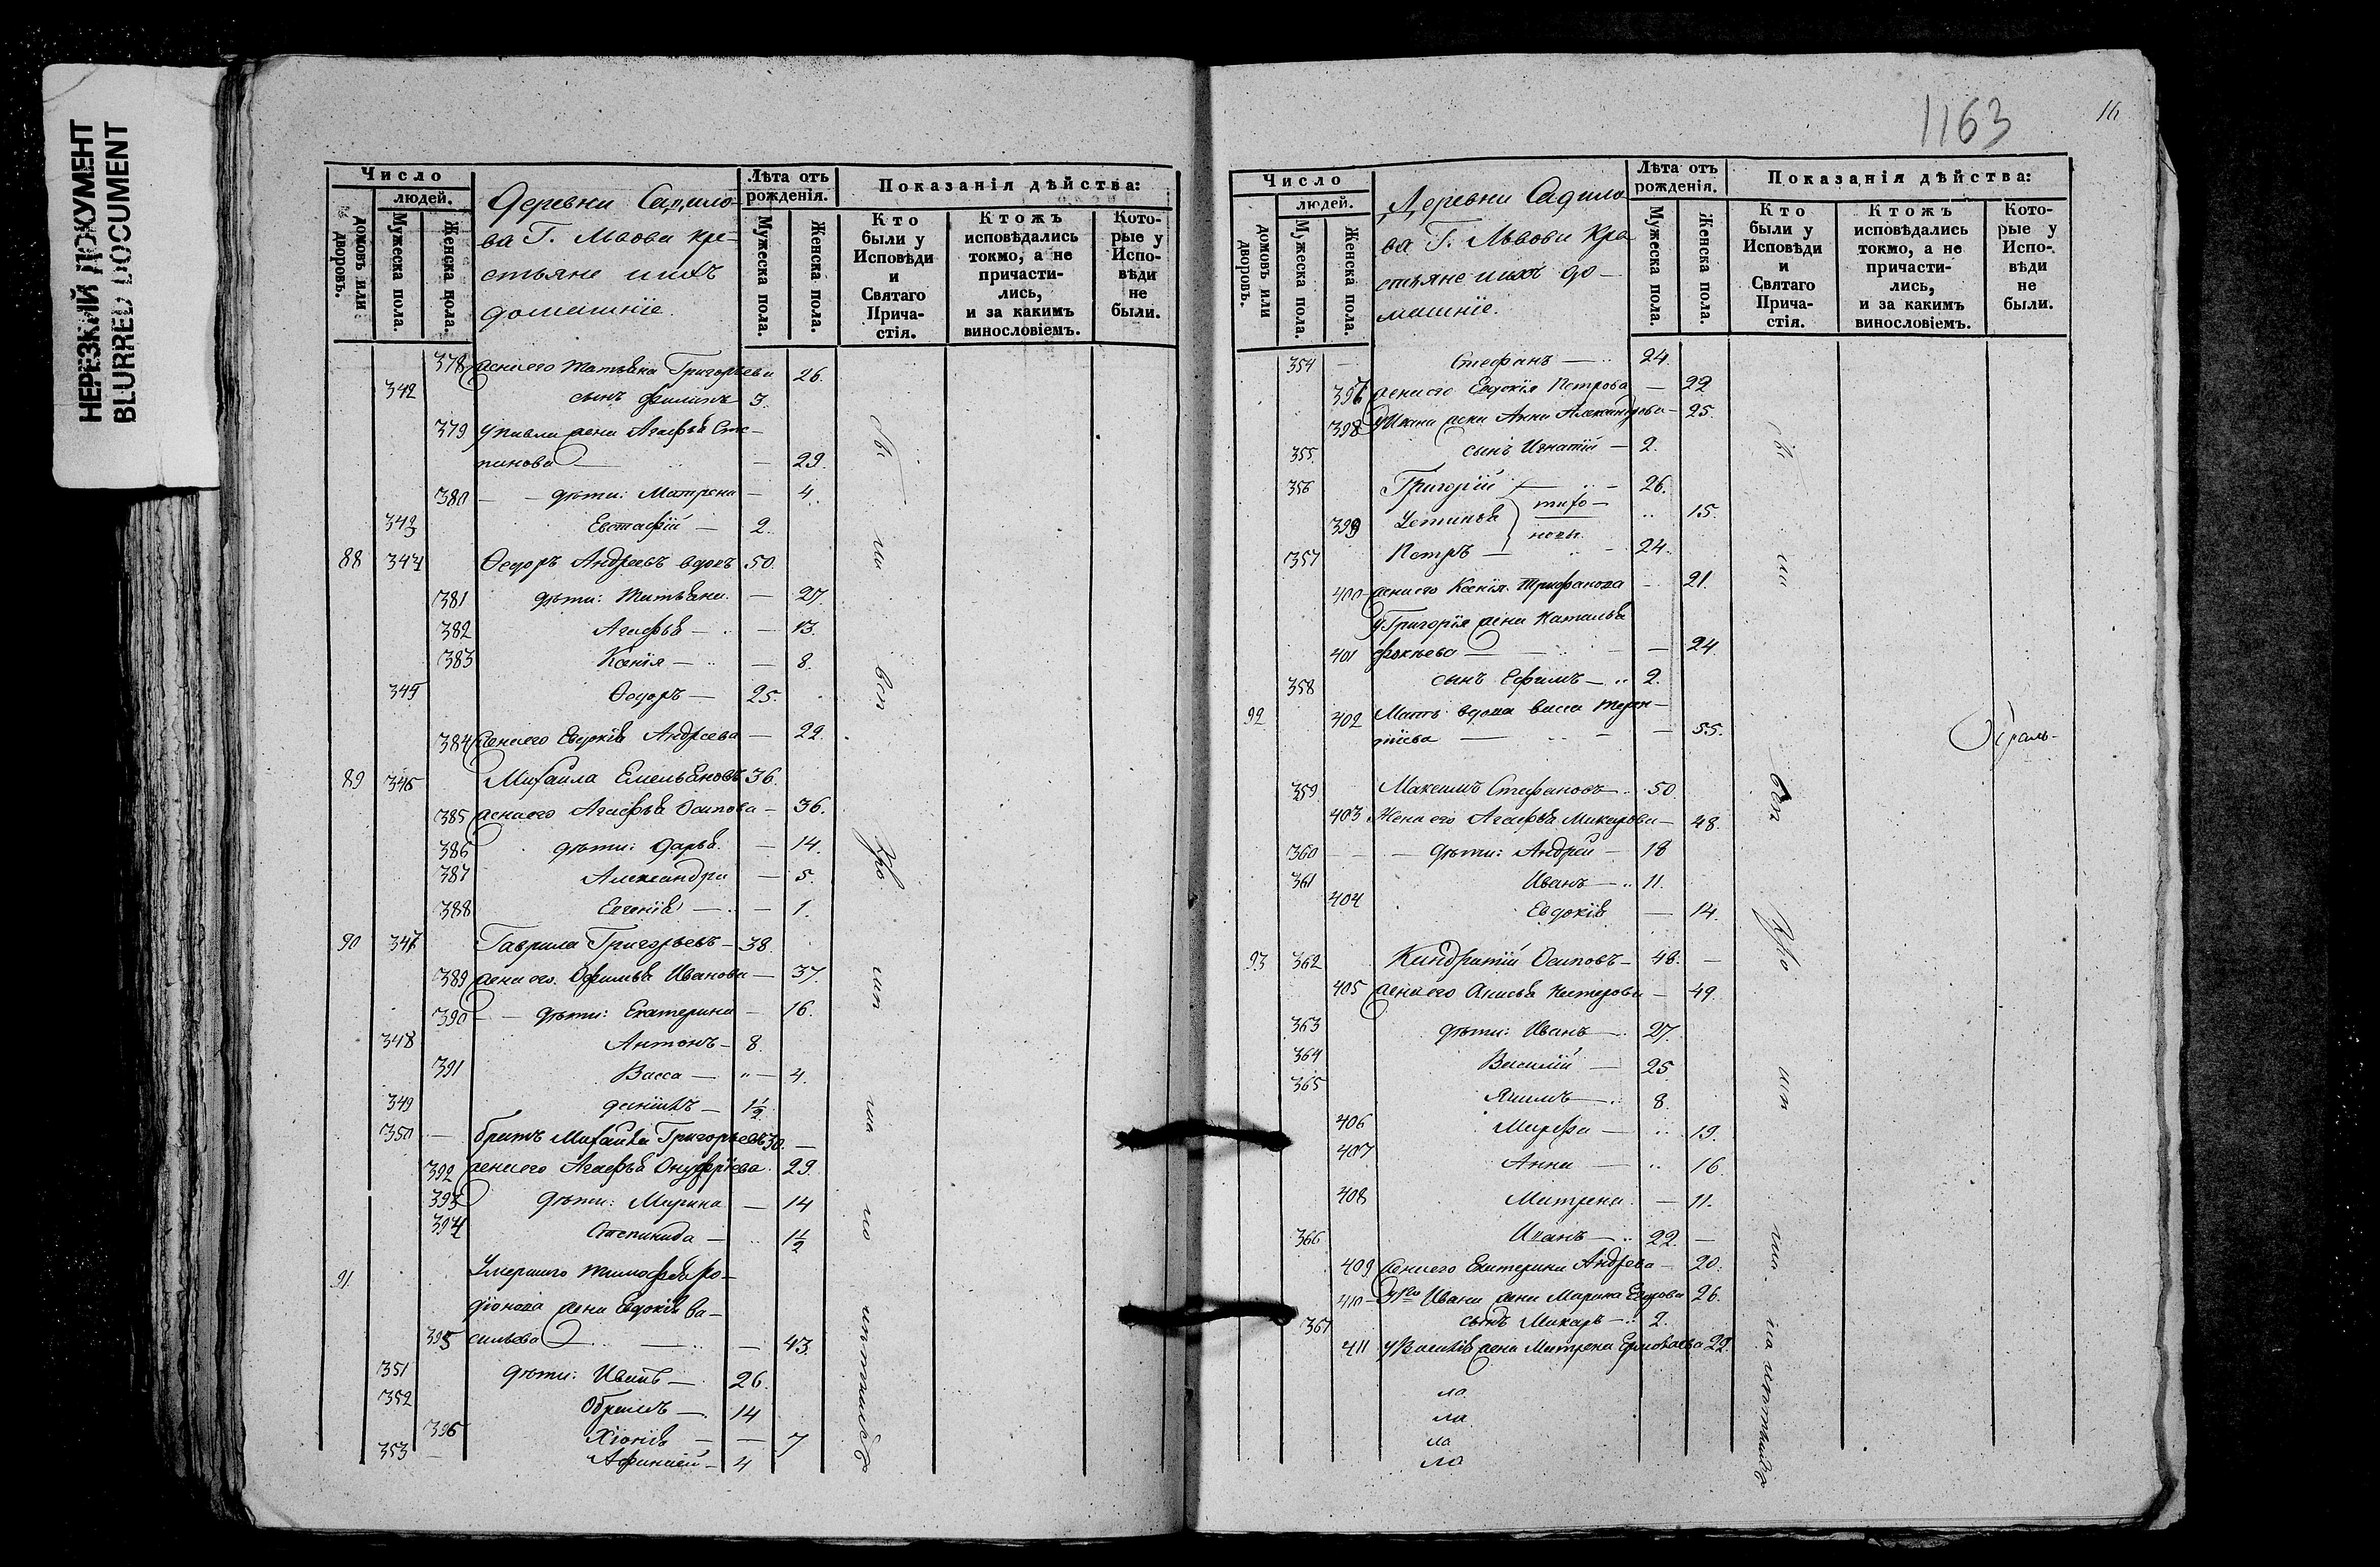 НЕРЕЗКИЙ ДОКУМЕНТ
BLURRED DOCUMENT
Число
людей.
домовъ или дворовъ.
Мужеска пола.
Женска пола.
Деревни Садило-
ва Г. Львови кре-
стьяне ихъ
домашніе.
Лѣта отъ рожденія.
Мужеска пола.
Женска пола.
Показанія дѣйства:
Кто были у Исповѣди и Святаго Прича-стія.
Ктожъ исповѣдались токмо, а не причасти-лись, и за какимъ винословіемъ.
Кото-рые у Испо-вѣди не были.
378 жена его Татьяна Григорьева 26.
342 сынъ Филипъ 3.
379 у Павла жена Агафья Сте-
панова — — 29.
380 — — дѣти: Матрена — 4.
343 Евстафій — 2.
88 344 Ѳедоръ Андреевъ вдовъ 50.
381 дѣти: Татьяна. — 27.
382 Агафья — — 13.
383 Ксенія — — 8.
345 Ѳедоръ — 25.
384 жена его Евдокія Андреева — 22.
89 346 Михаила Емельяновъ 36.
385 жена его Агафья Осипова — 36.
386 дѣти: Дарья. — 14.
387 Александра — 5.
388 Евгенія — — 1.
90 347 Гаврила Григорьевъ — 38.
389 жена его Офимья Иванова — 37.
390 — — дѣти: Екатерина — 16.
348 Антонъ — 8.
391 Васса — „ — 4.
349 — 1½
350 — братъ Михайла Григорьевъ 30. —
392 жена его Агафья Онуфріева 29.
393 дѣти: Марина — 14
394 Степанида — „ 1½
91. Умершаго Тимофея Ро-
діонова жена Евдокія Ва-
395 сильева — — 43.
351 дѣти: Иванъ — 26.
352 Обрамъ — 14
396 Хіонія — — 7
353 — Афанасій — 4
1163
16
Число
людей.
домовъ или дворовъ.
Мужеска пола.
Женска пола.
Деревни Садило
ва Г. Львови Кре
стьяне ихъ до-
машніе.
Лѣта отъ рожденія.
Мужеска пола.
Женска пола.
Показанія дѣйства:
Кто были у Исповѣди и Святаго Прича-стія.
Ктожъ исповѣдались токмо, а не причасти-лись, и за какимъ винословіемъ.
Кото-рые у Испо-вѣди не были.
354 — Стефанъ — 24.
397 жена его Евдокія Петрова — 22
398 у Ивана жена Анна Александрова — 25.
355. сынъ Игнатій — 2.
356 Григорій — 26.
399 Устинья 15.
357 Петръ — 24.
400 жена его Ксенія Трифанова — 21.
у Григорія жена Наталья
401 Фокѣева — — 24
358 сынъ Ефимъ — „ 2.
92 402 Мать вдова Васса Терен-
тіева — — 55.
359 Максимъ Стефановъ 50.
403 Жена его Агафья Макарова — 48.
360 — — дѣти: Андрей — 18
361 Иванъ — „ 11.
404 Евдокія — 14.
93 362 Киндратій Осиповъ — 48. —
405 жена его Анисья Нестерова — 49.
363 дѣти: Иванъ — 27.
364 Василій — 25
365 Якимъ — 8.
406 Марфа — „ 19.
407 Анна — „ 16.
408 Матрена — 11.
366 Иванъ — „ 22. —
409 жена его Екатерина Андреева — 20.
410 — Ивана жена Марина Егорова 26.
367 сынъ Макаръ — 2.
411 у Василія жена Матрена Ермолаева 22.